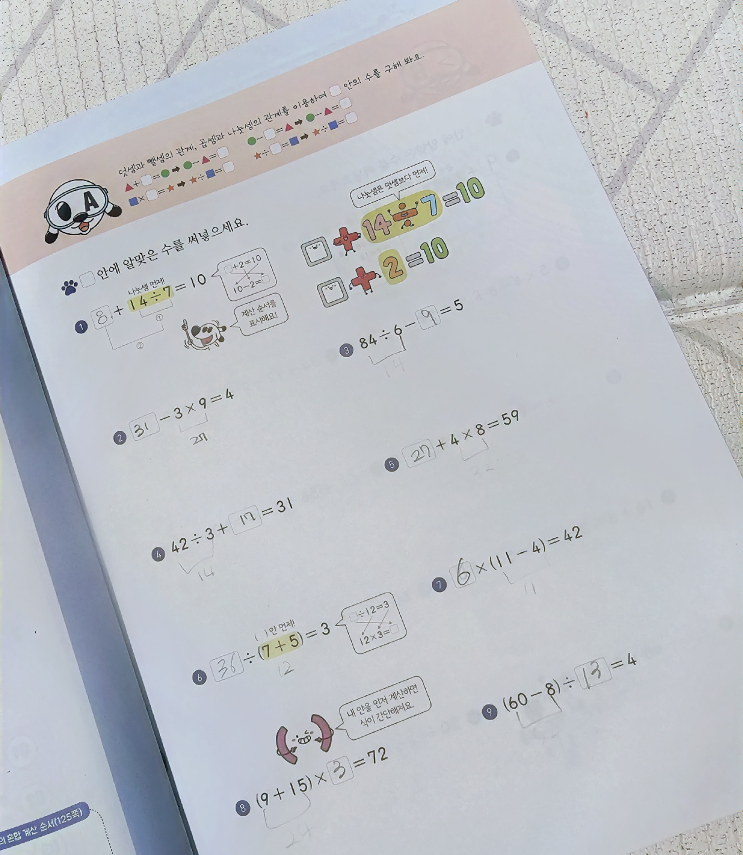 덧셈과 뺄셈의 관계, 곱셈과 나눗셈의 관계를 이용하여 □ 안의 수를 구해 봐요.
▲+□=●➡●-▲=□
●-□=▲➡●-▲=□
■×□=★➡★÷■=□
★÷□=■➡★÷■=□
A
□ 안에 알맞은 수를 써넣으세요.
나눗셈은 덧셈보다 먼저!
□+14÷7=10
□+2=10
나눗셈 먼저!
1 8+14÷7=10
① ②
□+2=10
10-2=□
계산 순서를
표시해요!
3 84÷6-9=5
14
2 31-3×9=4
27
5 27+4×8=59
4 42÷3+17=31
14
7 6×(11-4)=42
( )안 먼저!
6 36÷(7+5)=3
12
□÷12=3
12×3=□
9 (60-8)÷13=4
내 안을 먼저 계산하면
식이 간단해져요.
8 (9+15)×3=72
24
혼합 계산 순서(125쪽)